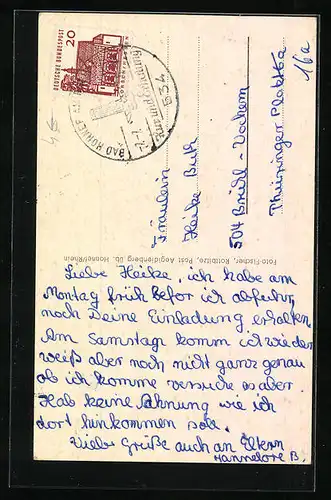 DEUTSCHE BUNDESPOST
20
BAD HONNEF
534
16a
Fräulein
Heike Buth
504 Brühl-Vochem
Thüringer Platz 1a
Foto-Fischer, Rottbitze, Post Aegidienberg üb. Honnef/Rhein
Liebe Heike, ich habe am
Montag früh befor ich abfuhr,
noch Deine Einladung erhalten.
Am Samstag komm ich wieder
weiß aber noch nicht ganz genau
ob ich komme versuche es aber.
Hab keine Ahnung wie ich
dort hinkommen soll.
Viele Grüße auch an Eltern
Hannelore B.